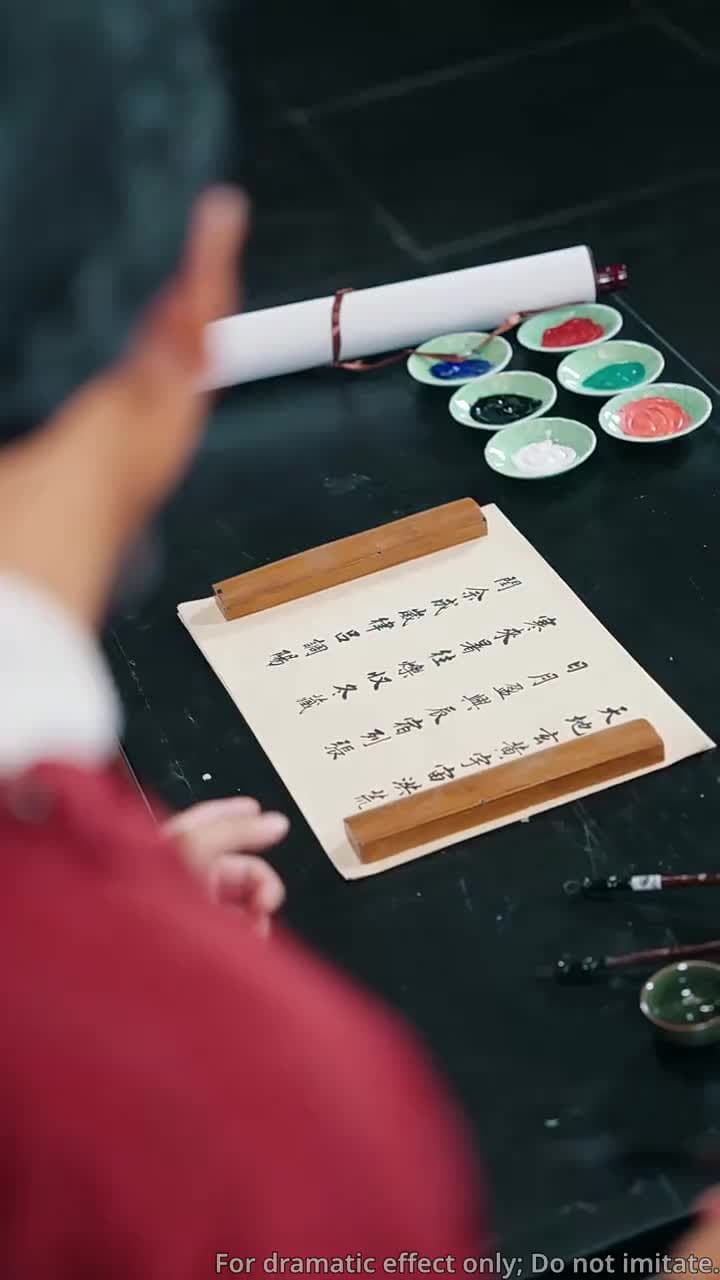 天地玄黄宇宙洪荒
日月盈 辰宿列張
寒來暑往 収冬藏
閏余成歲律呂調陽
For dramatic effect only; Do not imitate.